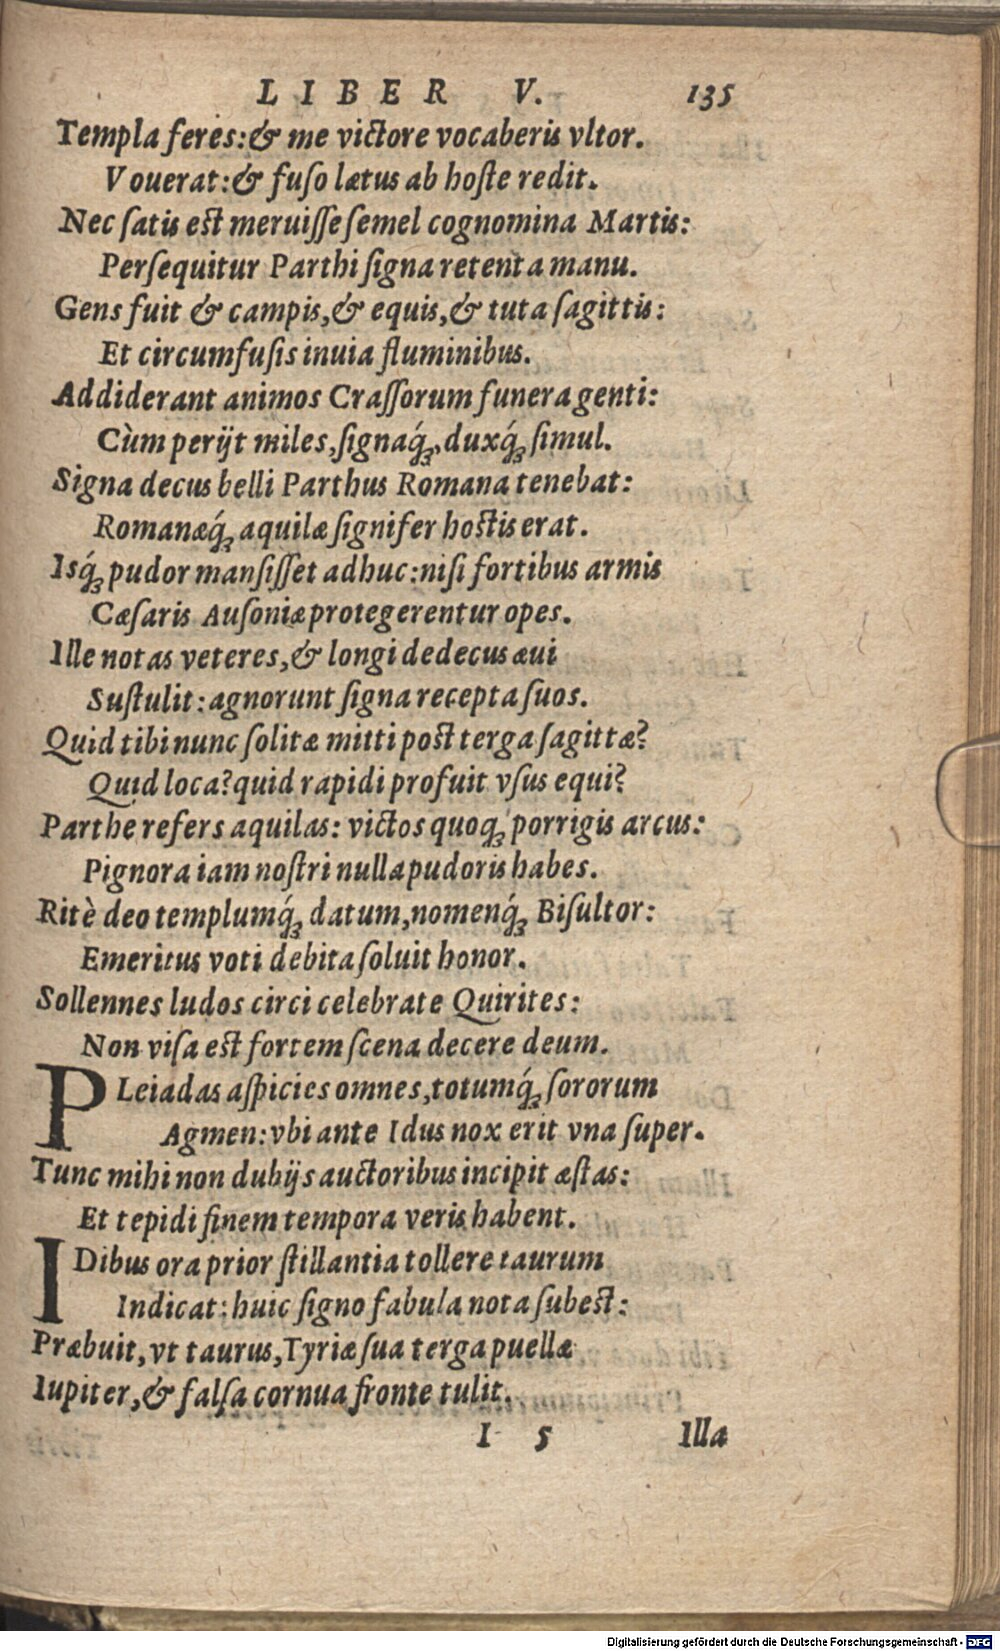 LIBER V. 135
Templa feres:& me victore vocaberis vltor.
Vouerat:& fuso lætus ab hoste redit.
Nec satis est meruisse semel cognomina Martis:
Persequitur Parthi signa retenta manu.
Gens fuit & campis,& equis,& tuta sagittis:
Et circumfusis inuia fluminibus.
Addiderant animos Crassorum funera genti:
Cùm perijt miles,signaq́;,duxq́; simul.
Signa decus belli Parthus Romana tenebat:
Romanæq́; aquilæ signifer hostis erat.
Isq́; pudor mansisset adhuc:nisi fortibus armis
Cæsaris Ausoniæ protegerentur opes.
Ille notas veteres,& longi dedecus æui
Sustulit:agnorunt signa recepta suos.
Quid tibi nunc solitæ mitti post terga sagittæ?
Quid loca?quid rapidi profuit vsus equi?
Parthe refers aquilas: victos quoq; porrigis arcus:
Pignora iam nostri nulla pudoris habes.
Ritè deo templumq́; datum,nomenq́; Bisultor:
Emeritus voti debita soluit honor.
Sollennes ludos circi celebrate Quirites:
Non visa est fortem scena decere deum.
PLeiadas aspicies omnes,totumq́; sororum
Agmen:vbi ante Idus nox erit vna super.
Tunc mihi non dubijs auctoribus incipit æstas:
Et tepidi finem tempora veris habent.
IDibus ora prior stillantia tollere taurum
Indicat:huic signo fabula nota subest:
Præbuit,vt taurus,Tyriæ sua terga puellæ
Iupiter,& falsa cornua fronte tulit.
I 5 Illa
Digitalisierung gefördert durch die Deutsche Forschungsgemeinschaft - DFG